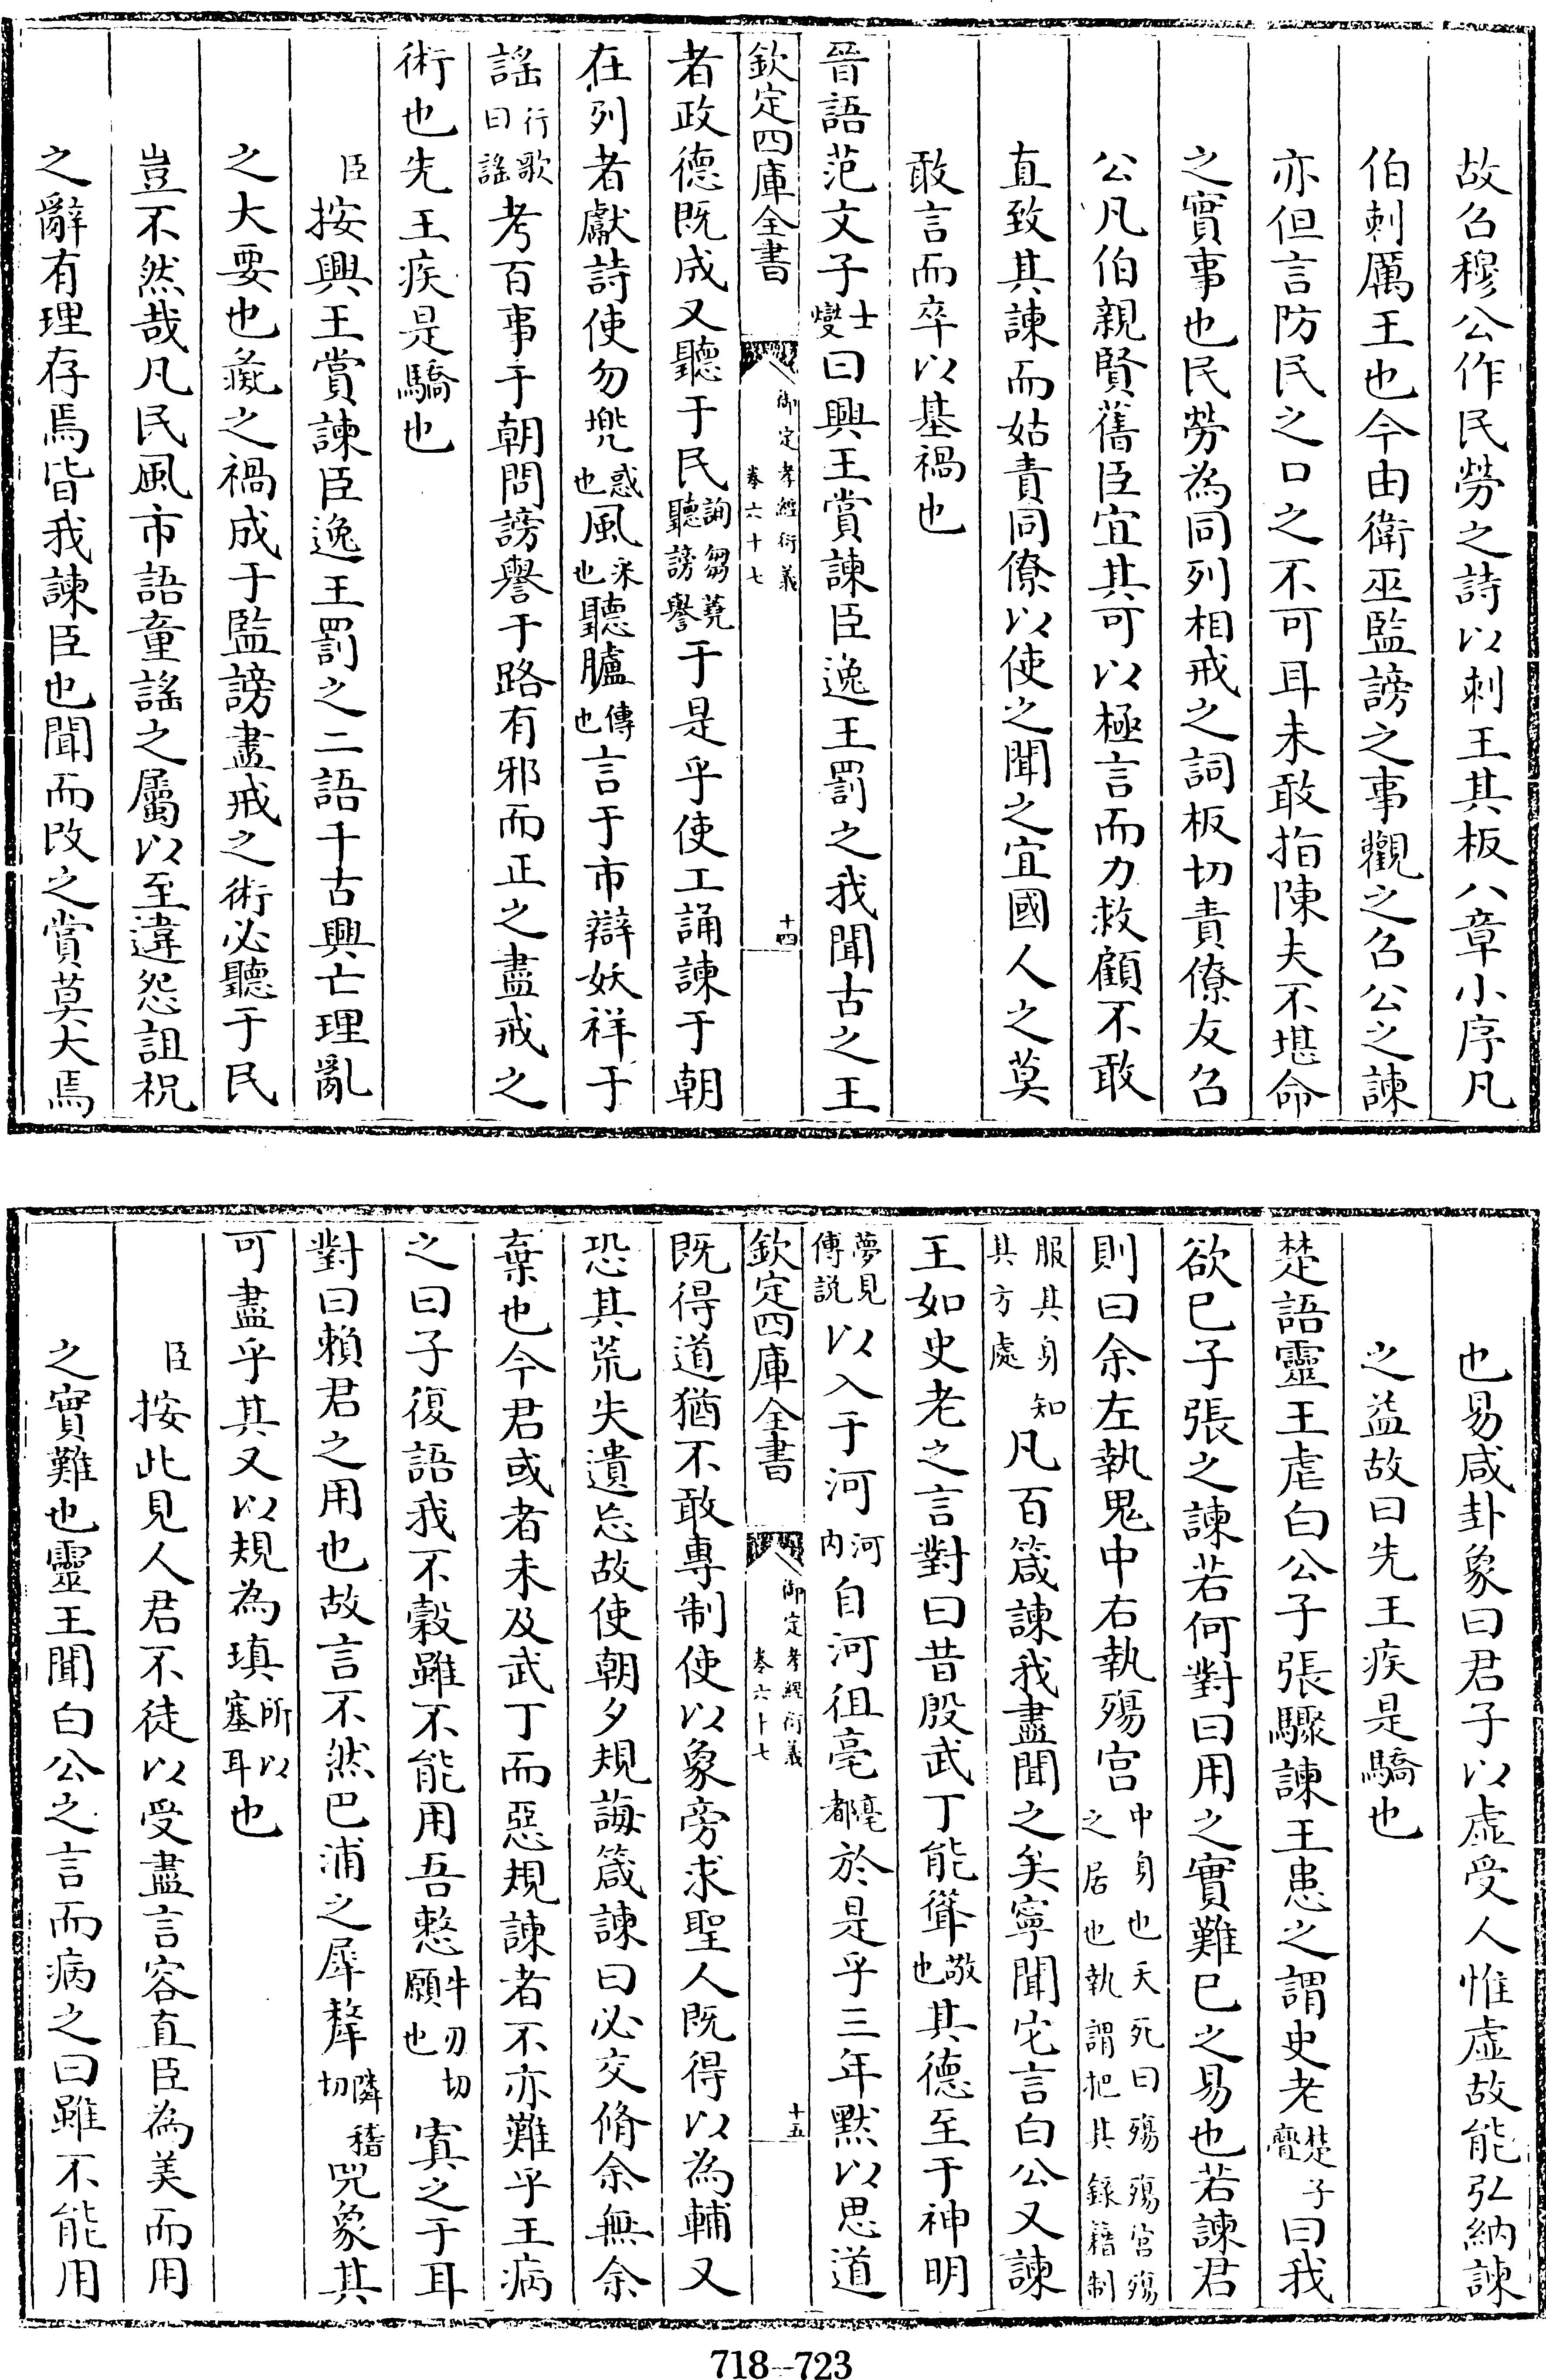 故召穆公作民勞之詩以刺王其板八章小序凡
伯刺厲王也今由衛巫監謗之事觀之召公之諫
亦但言防民之口之不可耳未敢指陳夫不堪命
之實事也民勞為同列相戒之詞板切責僚友召
公凡伯親賢舊臣宜其可以極言而力救顧不敢
直致其諫而姑責同僚以使之聞之宜國人之莫
敢言而卒以基禍也
晉語范文子士燮曰興王賞諫臣逸王罰之我聞古之王
欽定四庫全書 御定孝經衍義 卷六十七 十四
者政德既成又聽于民詢芻蕘聽謗譽于是乎使工誦諫于朝
在列者獻詩使勿兠惑也風采也聽臚傳也言于市辯妖祥于
謡行歌曰謡考百事于朝問謗譽于路有邪而正之盡戒之
術也先王疾是驕也
臣按興王賞諫臣逸王罰之二語千古興亡理亂
之大要也蕤之禍成于監謗盡戒之術必聽于民
豈不然哉凡民風市語童謡之屬以至違怨詛祝
之辭有理存焉皆我諫臣也聞而改之賞莫大焉
也易咸卦象曰君子以虛受人惟虛故能弘納諫
之益故曰先王疾是驕也
楚語靈王虐白公子張驟諫王患之謂史老楚子亹曰我
欲已子張之諫若何對曰用之實難已之易也若諫君
則曰余左執鬼中右執殤宮中身也夭死曰殤殤宮殤之居也執謂把其錄籍制
服其身知其方處凡百箴諫我盡聞之矣寧聞它言白公又諫
王如史老之言對曰昔殷武丁能聳敬也其德至于神明
夢見傅説以入于河河內自河徂亳亳都於是乎三年默以思道
欽定四庫全書 御定孝經衍義 卷六十七 十五
既得道猶不敢專制使以象旁求聖人既得以為輔又
恐其荒失遺忘故使朝夕規誨箴諫曰必交脩余無余
棄也今君或者未及武丁而惡規諫者不亦難乎王病
之曰子復語我不穀雖不能用吾憖牛刃切願也寘之于耳
對曰賴君之用也故言不然巴浦之犀犛隣稽切兕象其
可盡乎其又以規為瑱所以塞耳也
臣按此見人君不徒以受盡言容直臣為美而用
之實難也靈王聞白公之言而病之曰雖不能用
718--723